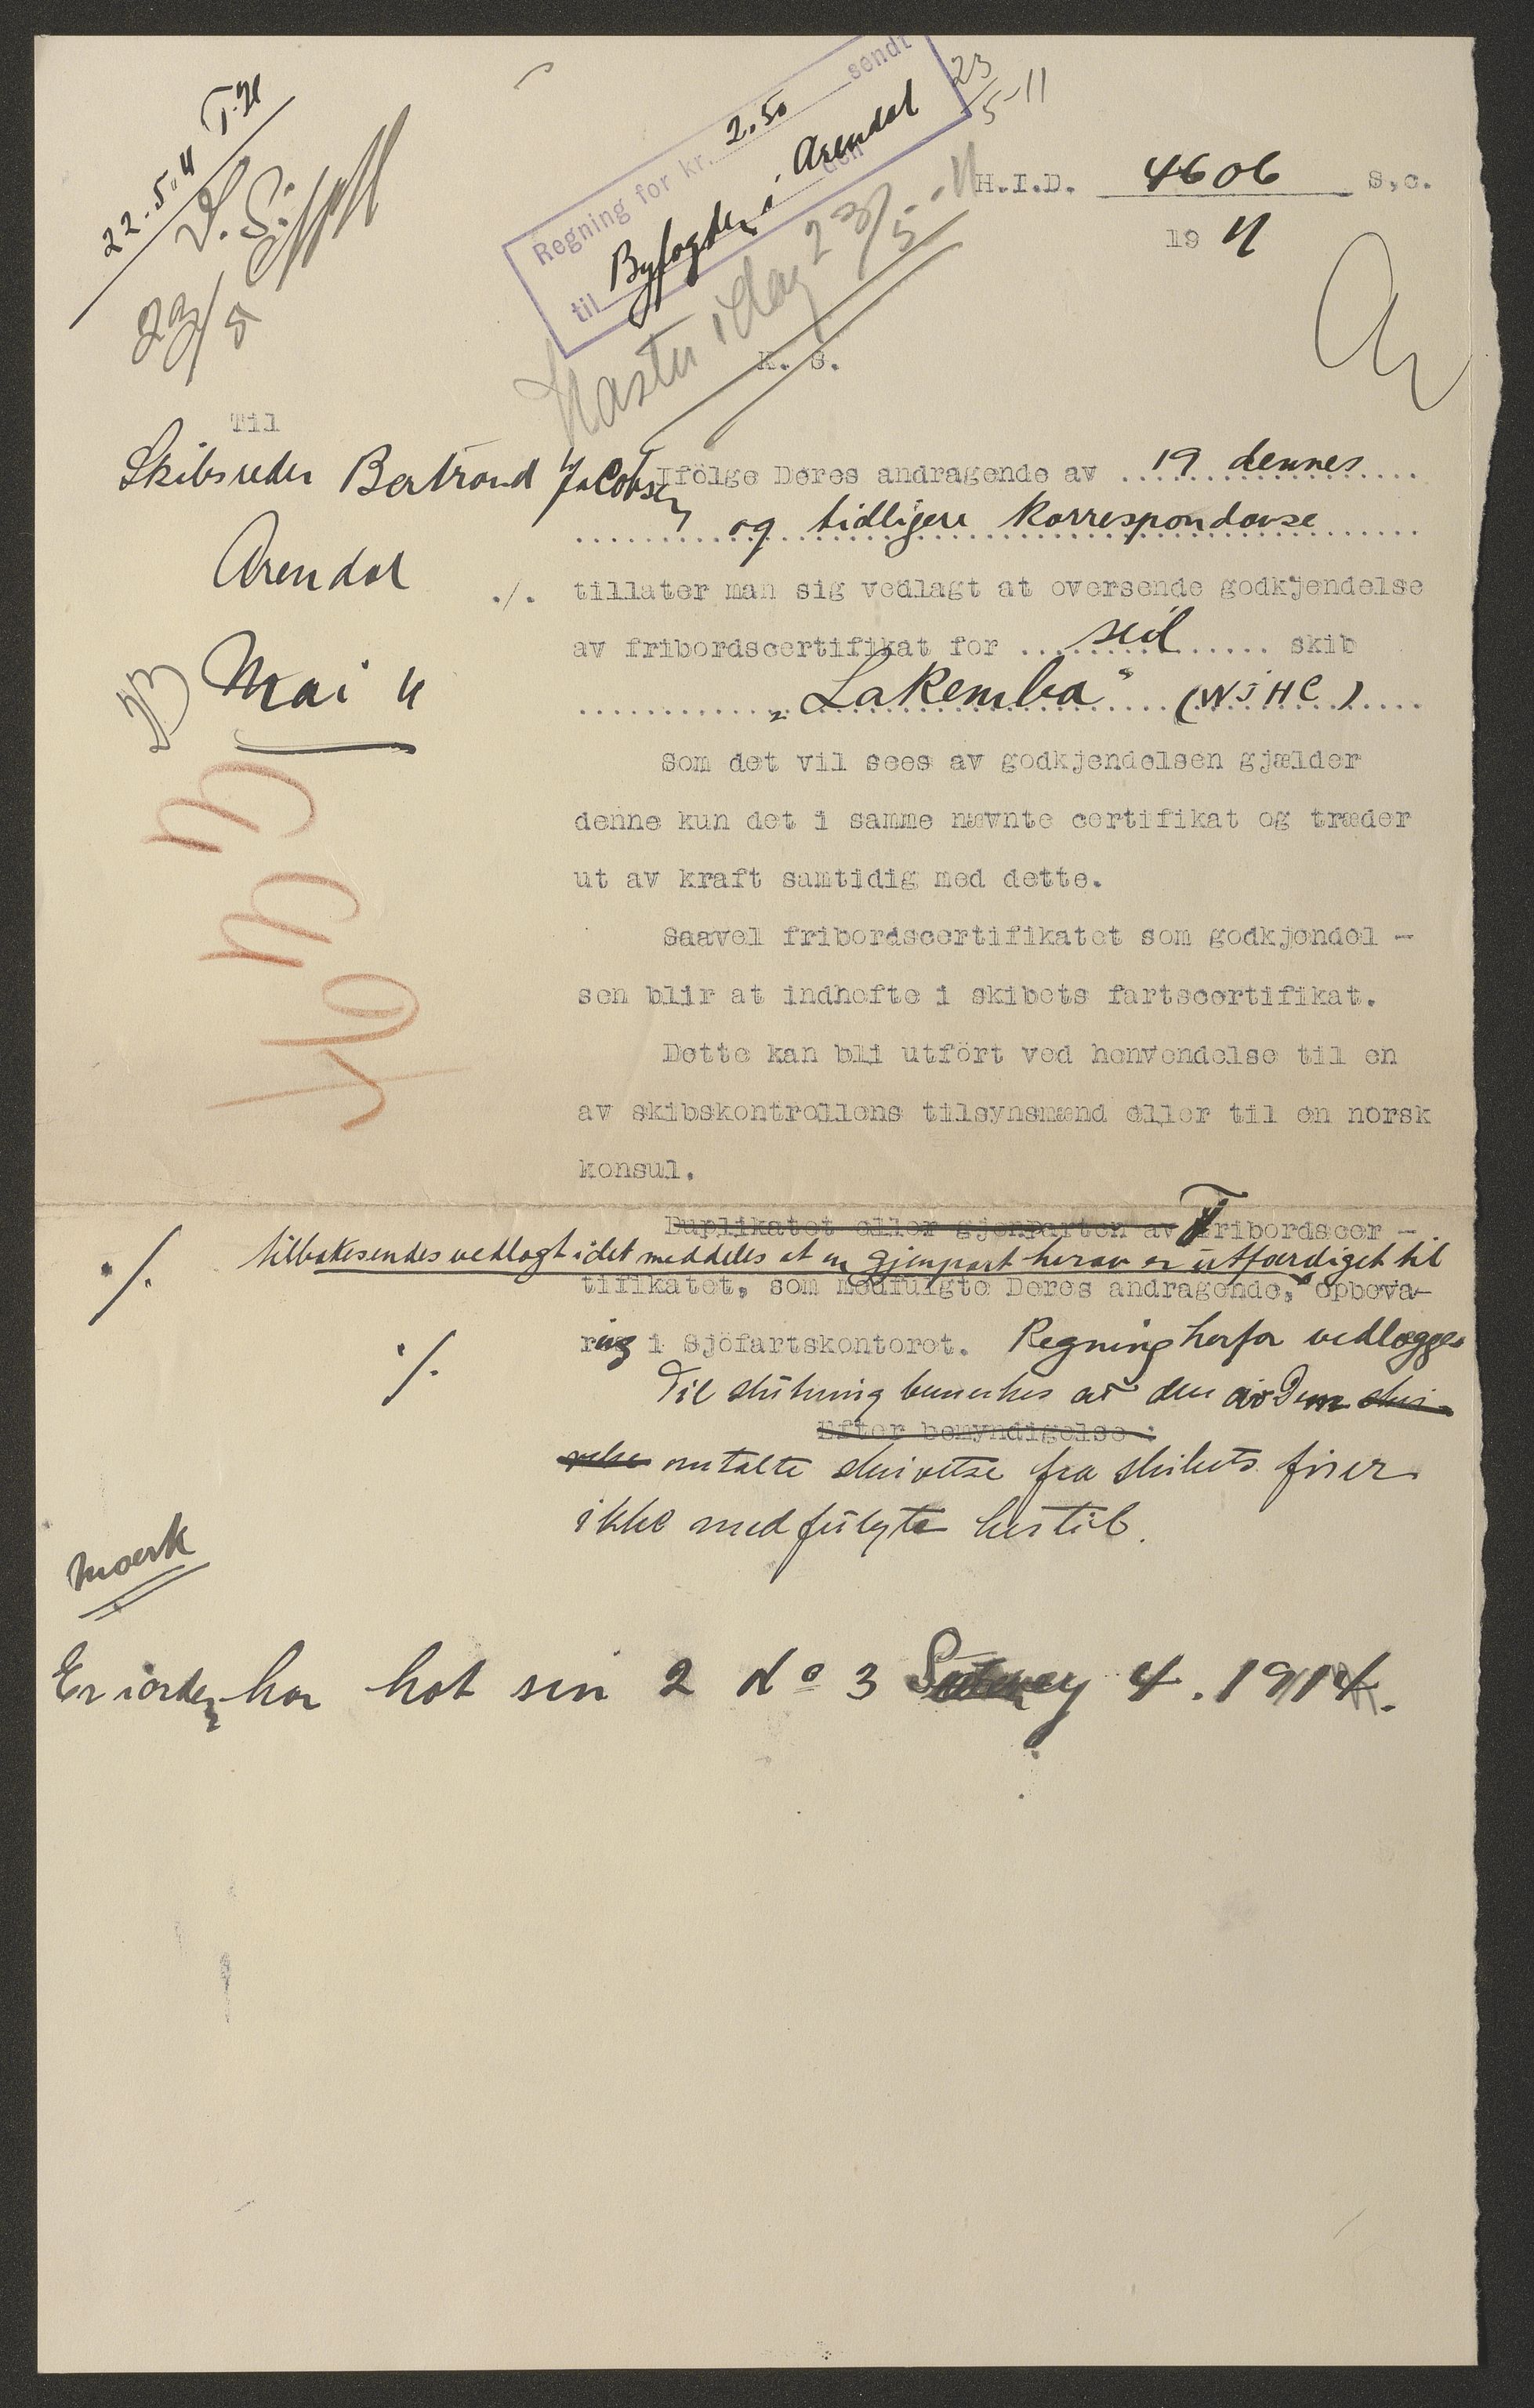 22-5-11
23/5
Regning for kr. 2.50 sendt
til Byfogden i Arendal den
23/5-11
Haster idag 23/5.-11
H.I.D. 4606 S.c.
1911
K. S.
Til
Skibsreder Bertrand Jacobsen
Arendal
23 Mai 11
Ifölge Deres andragende av 19 dennes
og tidligere korrespondanse
./. tillater man sig vedlagt at oversende godkjendelse
av fribordscertifikat for seil skib
„Lakemba" (WJHC)
Som det vil sees av godkjendelsen gjælder
denne kun det i samme nævnte certifikat og træder
ut av kraft samtidig med dette.
Saavel fribordscertifikatet som godkjendel -
sen blir at indhefte i skibets fartscertifikat.
Dette kan bli utfört ved henvendelse til en
av skibskontrollens tilsynsmænd eller til en norsk
konsul.
Duplikatet eller gjenparten av Fribordscer -
./. tilbakesendes vedlagt idet meddeles at en gjenpart herav er utfærdiget til
tifikatet, som medfulgte Deres andragende, opbeva-
ring i Sjöfartskontoret. Regning herfor vedlægges
./.
Til slutning bemerkes at den av Dem skri-
Efter bemyndigelse :
velse omtalte skrivelse fra skibets fører
ikke medfulgte hertil.
Mærk
Er iorden har hat sin 2 do 3 4. 1914.